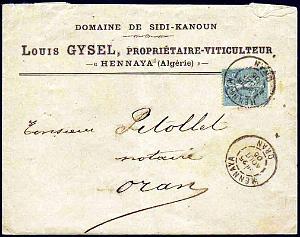 DOMAINE DE SIDI-KANOUN
LOUIS GYSEL, PROPRIÉTAIRE-VITICULTEUR
HENNAYA (Algérie)
Monsieur Pitollet
notaire
Oran
HENNAYA
ORAN